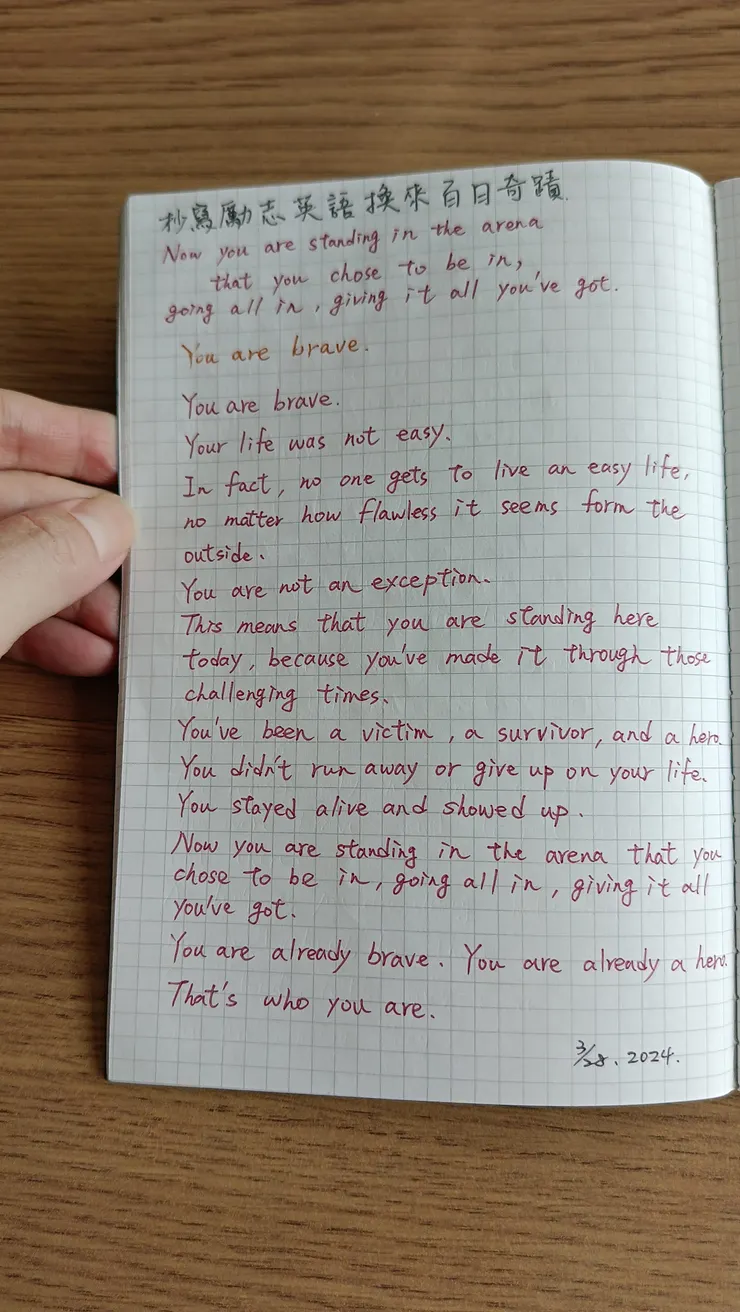 抄寫勵志英語換來百日奇蹟.
Now you are standing in the arena
that you chose to be in,
going all in, giving it all you've got.
You are brave.
You are brave.
Your life was not easy.
In fact, no one gets to live an easy life,
no matter how flawless it seems form the
outside.
You are not an exception.
This means that you are standing here
today, because you've made it through those
challenging times.
You've been a victim, a survivor, and a hero.
You didn't run away or give up on your life.
You stayed alive and showed up.
Now you are standing in the arena that you
chose to be in, going all in, giving it all
you've got.
You are already brave. You are already a hero.
That's who you are.
3/28. 2024.